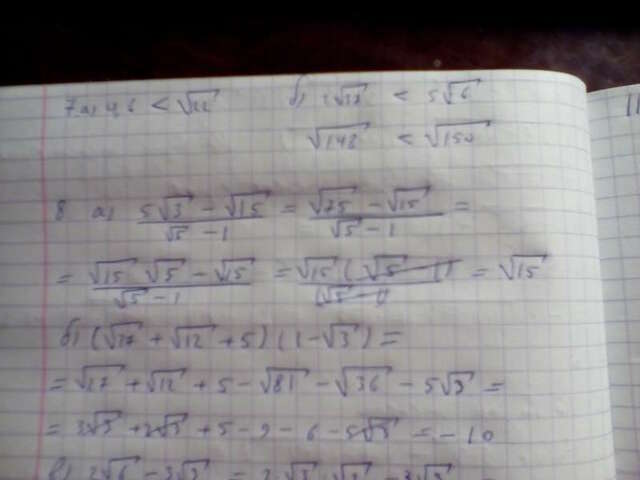 7 а) 4,6 < √22 б) 2√37 < 5√6
√148 < √150
8 а) (5√3 − √15)/(√5 − 1) = (√75 − √15)/(√5 − 1) =
= (√15 √5 − √15)/(√5 − 1) = √15 (√5 − 1)/(√5 − 1) = √15
б) (√27 + √12 + 5) (1 − √3) =
= √27 + √12 + 5 − √81 − √36 − 5√3 =
= 3√3 + 2√3 + 5 − 9 − 6 − 5√3 = −10